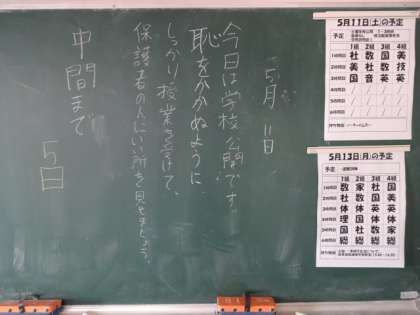 5月11日
今日は学校公開です。
恥をかかぬように、
しっかり授業を受けて、
保護者の人にいい所を見せましょう。
中間まで
5日
5月11日(土)の予定
予定
1組 2組 3組 4組
1時間目 社 数 国 美
2時間目 美 社 数 技
3時間目 国 音 英 英
4時間目
5時間目
6時間目
5月13日(月)の予定
予定
1組 2組 3組 4組
1時間目 数 家 社 国
2時間目 社 家 国 美
3時間目 体 体 英 英
4時間目 理 国 体 体
5時間目 国 社 数 家
6時間目 総 総 総 総